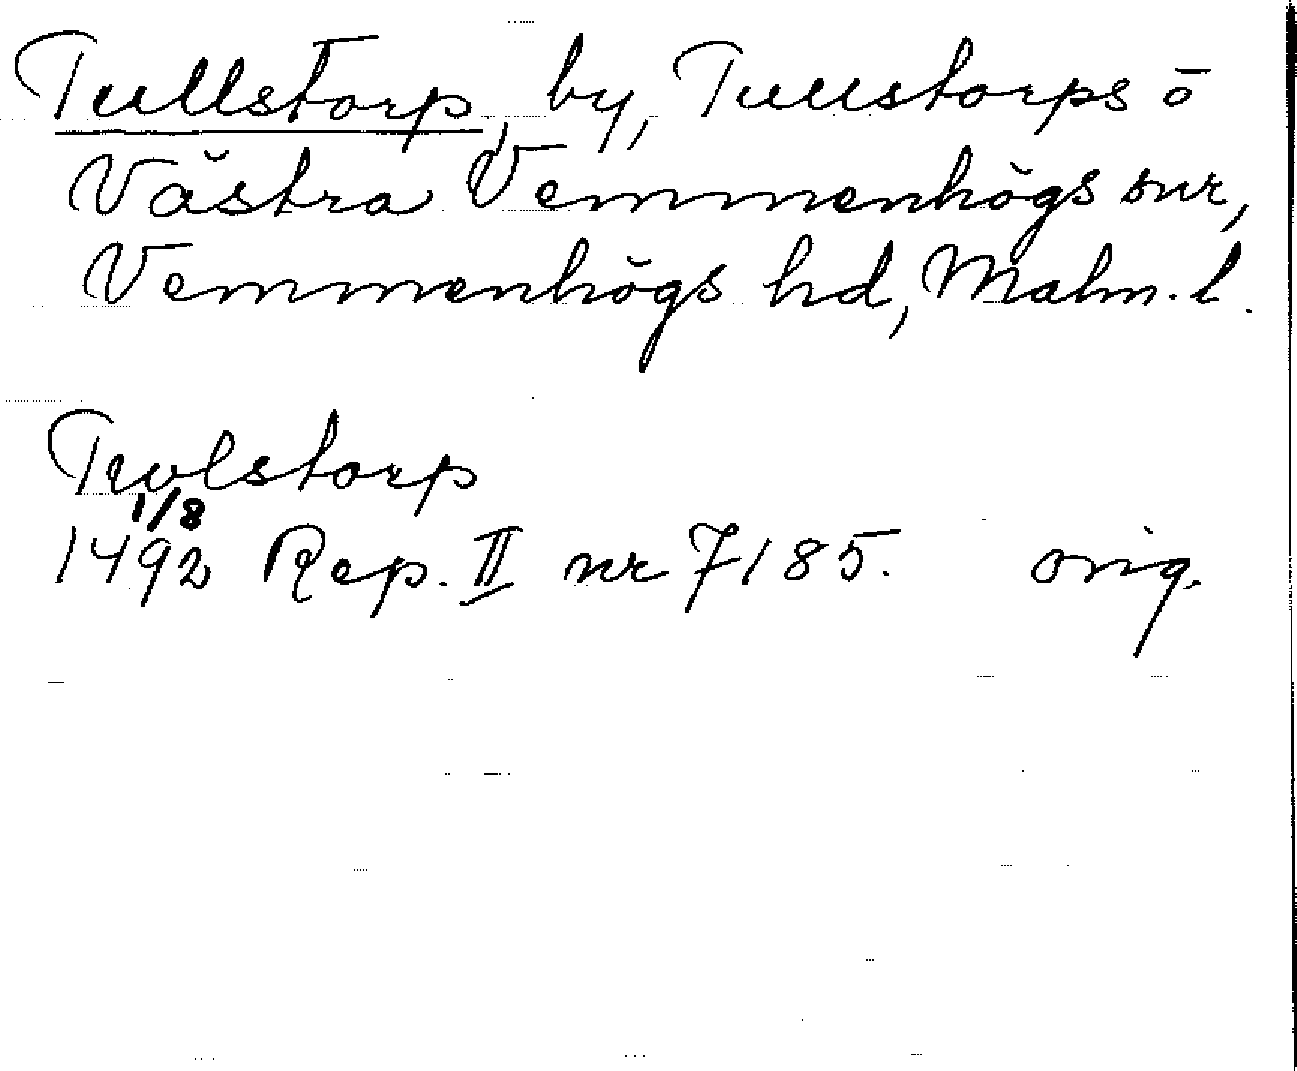 Tullstorp, by, Tullstorps o
Västra Vemmenhögs snr,
Vemmenhögs hd, Malm. l.
Trolstorp
1/8
1492 Rep. II nr 7185. orig.